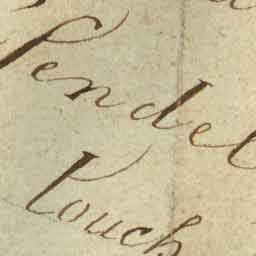 Pendel
Couch